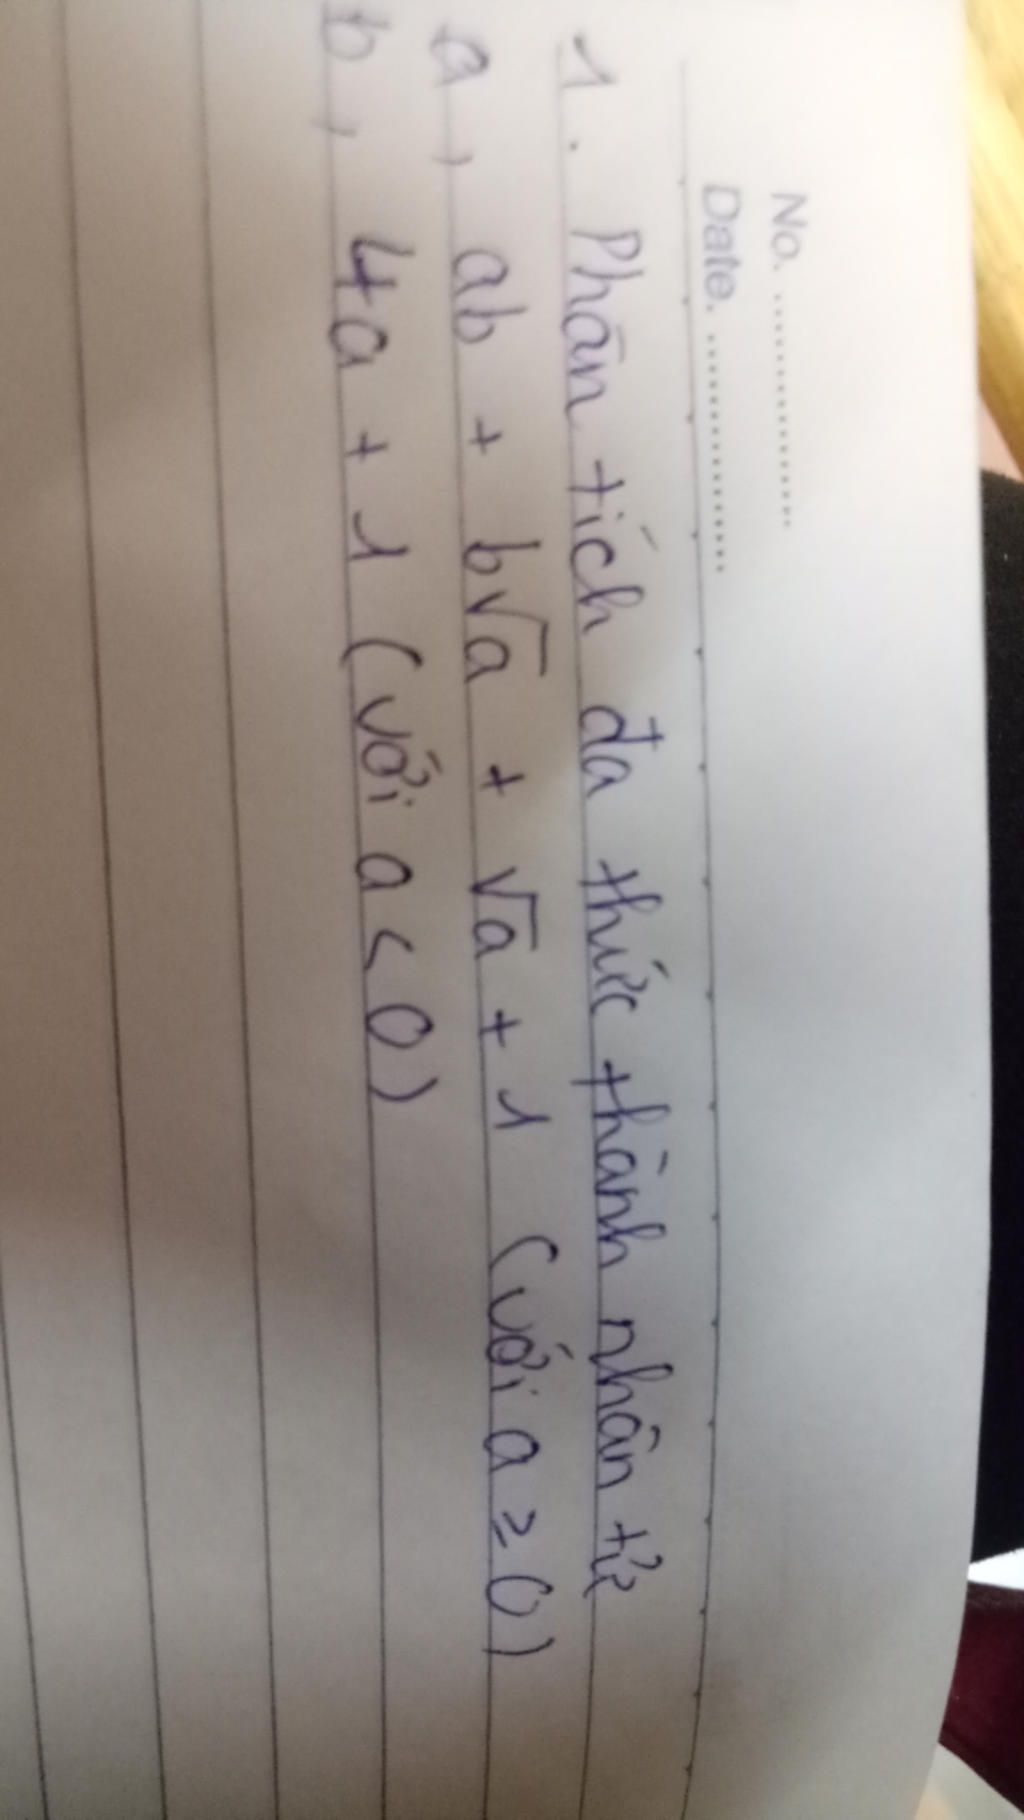 No. ................
Date. ................
1. Phân tích đa thức thành nhân tử
a, ab + b√a + √a + 1 (với a ≥ 0)
b, 4a + 1 (với a < 0)